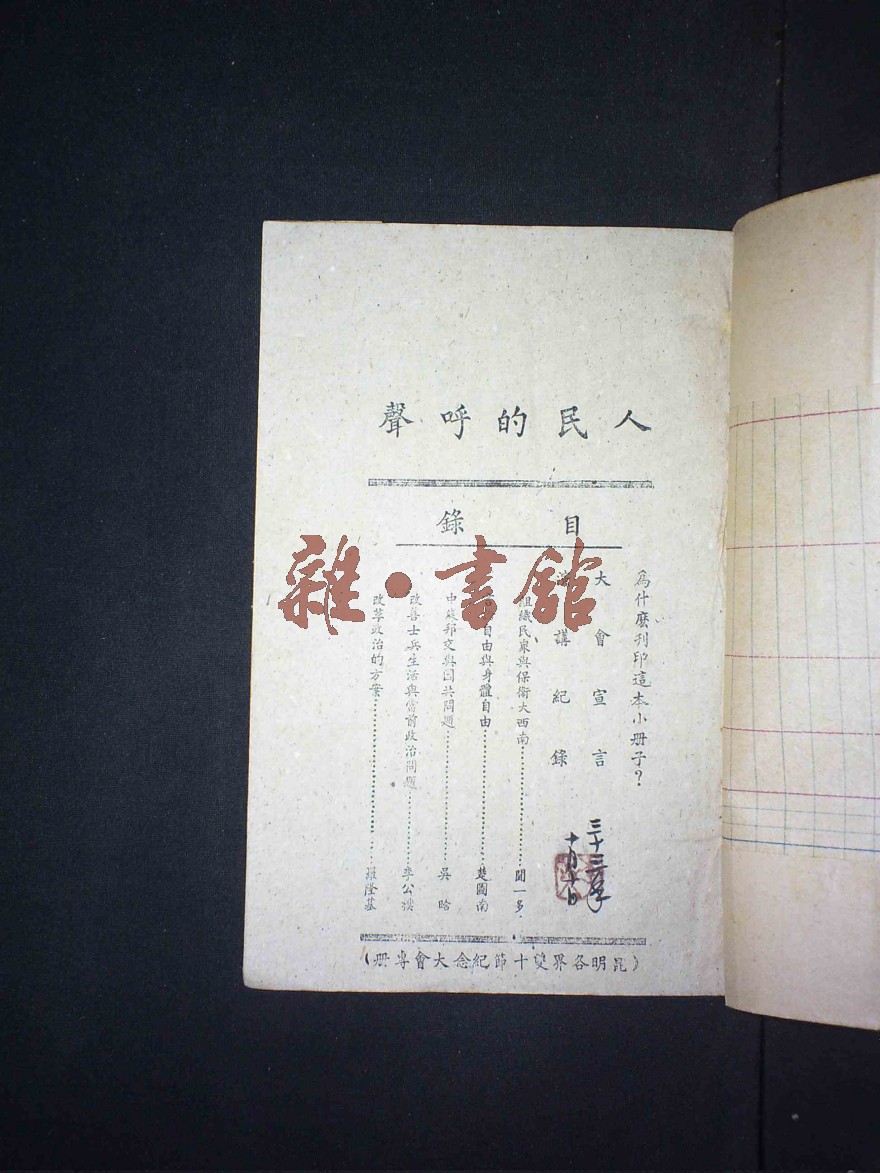 人民的呼聲
目錄
為什麼刊印這本小冊子？
大會宣言
講紀錄
組織民衆與保衛大西南……聞一多
自由與身體自由……楚圖南
中蘇邦交與國共問題……吳晗
改善士兵生活與當前政治問題……李公樸
改革政治的方案……羅隆基
（昆明各界雙十節紀念大會專冊）
三十三年
十月十日
雜·書館